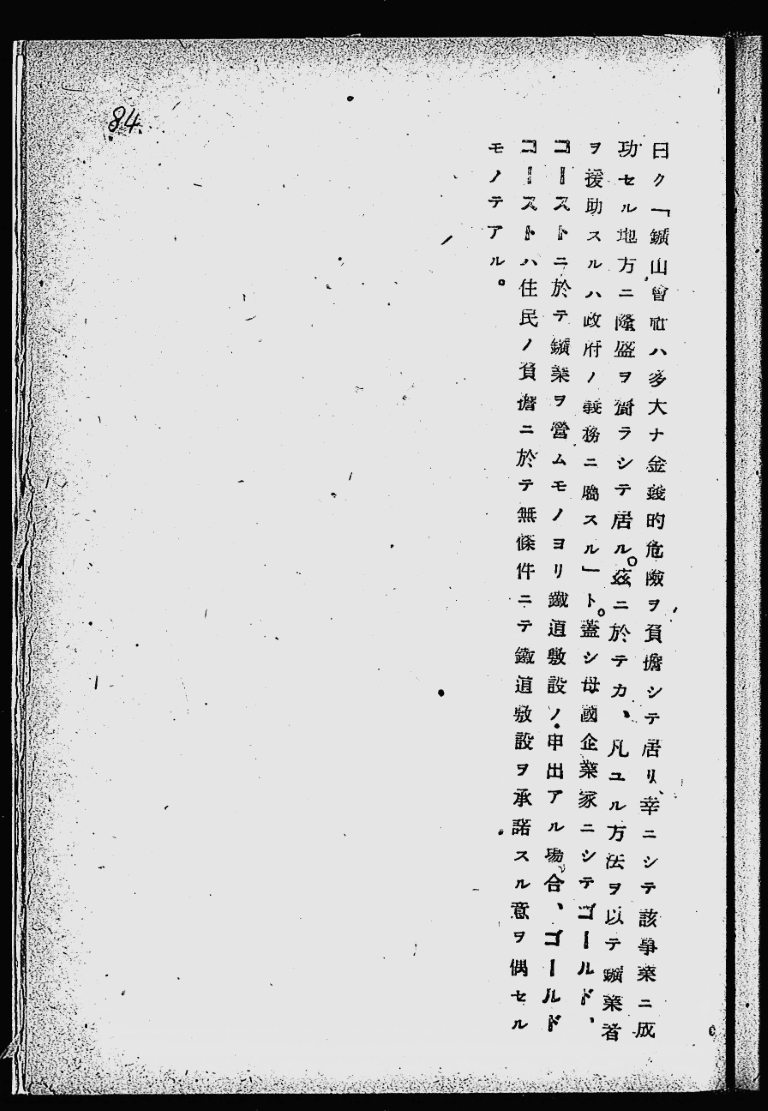 84.
曰ク「鑛山會社ハ多大ナ金錢的危險ヲ負擔シテ居リ、幸ニシテ該事業ニ成
功セル地方ニ隆盛ヲ齎ラシテ居ル。茲ニ於テカ、凡ユル方法ヲ以テ鑛業者
ヲ援助スルハ政府ノ義務ニ屬スル」ト。蓋シ母國企業家ニシテゴールド、
コーストニ於テ鑛業ヲ營ムモノヨリ鐵道敷設ノ申出アル場合、ゴールド
コーストハ住民ノ負擔ニ於テ無條件ニテ鐵道敷設ヲ承諾スル意ヲ偶セル
モノテアル。